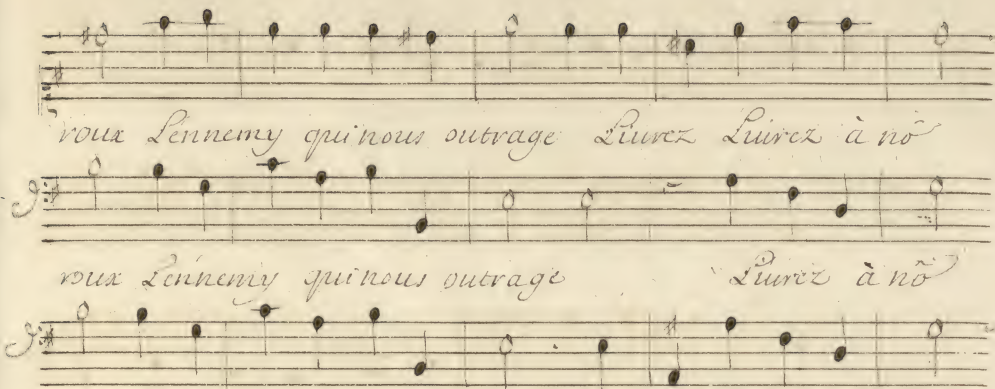 roux L'ennemy qui nous outrage Livrez Livrez à nõ
roux L'ennemy qui nous outrage Livrez à nõ